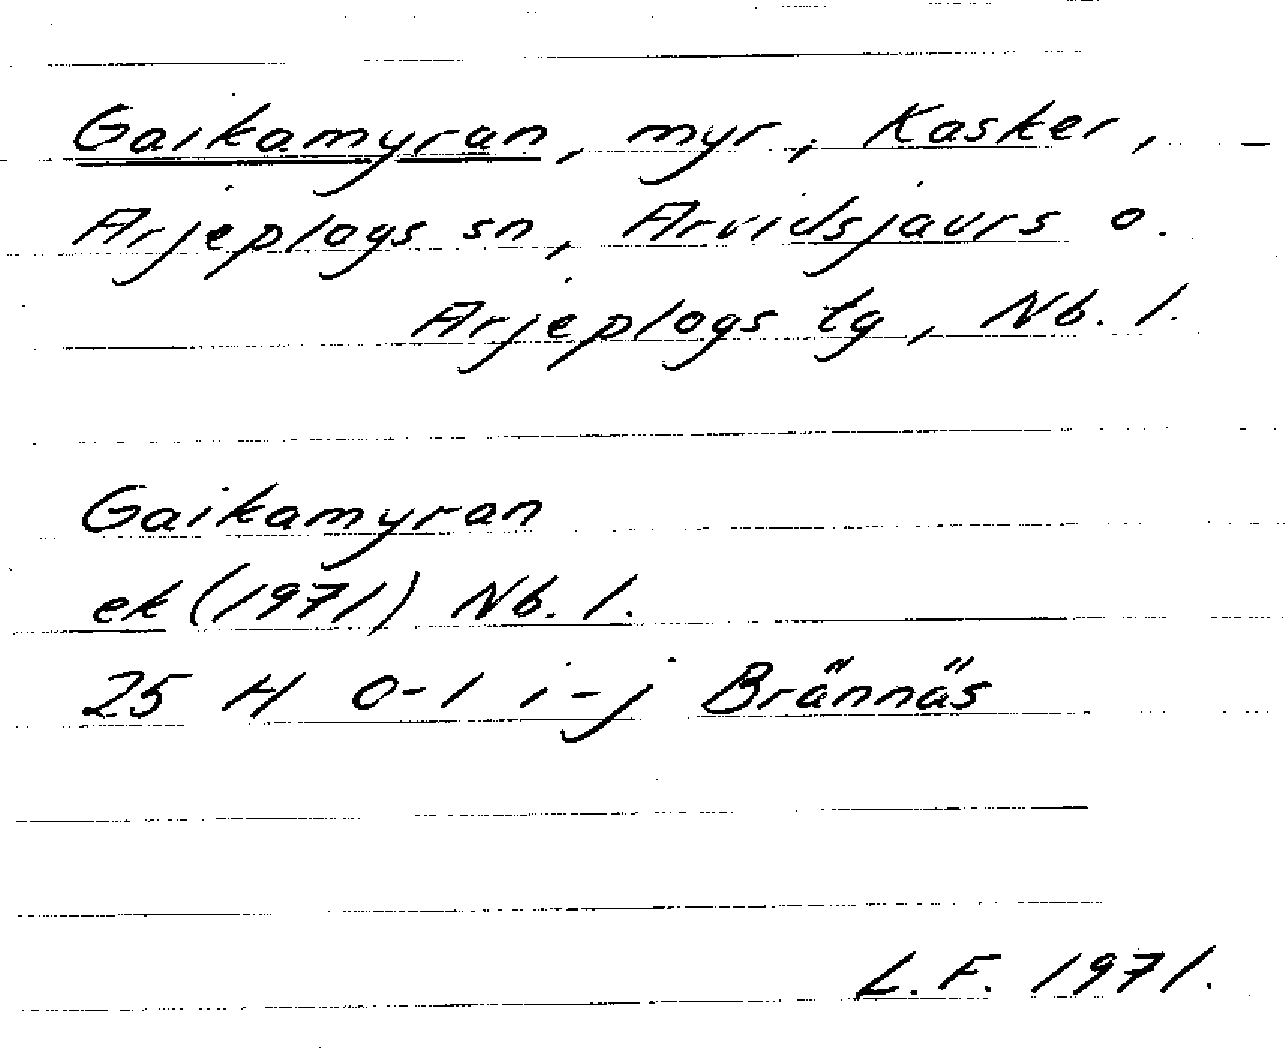 Gaikamyran, myr, Kasker,
Arjeplogs sn, Arvidsjaurs o.
Arjeplogs tg, Nb. l.
Gaikamyran
ek (1971) Nb. l.
25 H 0-1 i-j Brännäs
L. F. 1971.